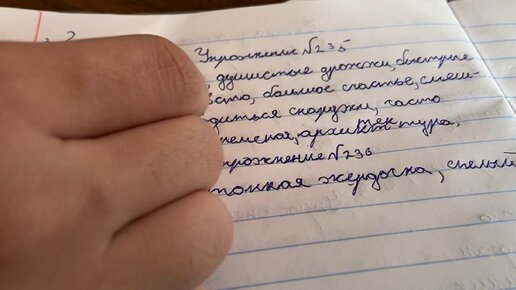 Упражнение №235
, душистые дрожжи, быстрые
большое счастье, смеш-
диться снаружи, часто
архитектура,
пражнение №236
тонкая жёрдочка, спелый